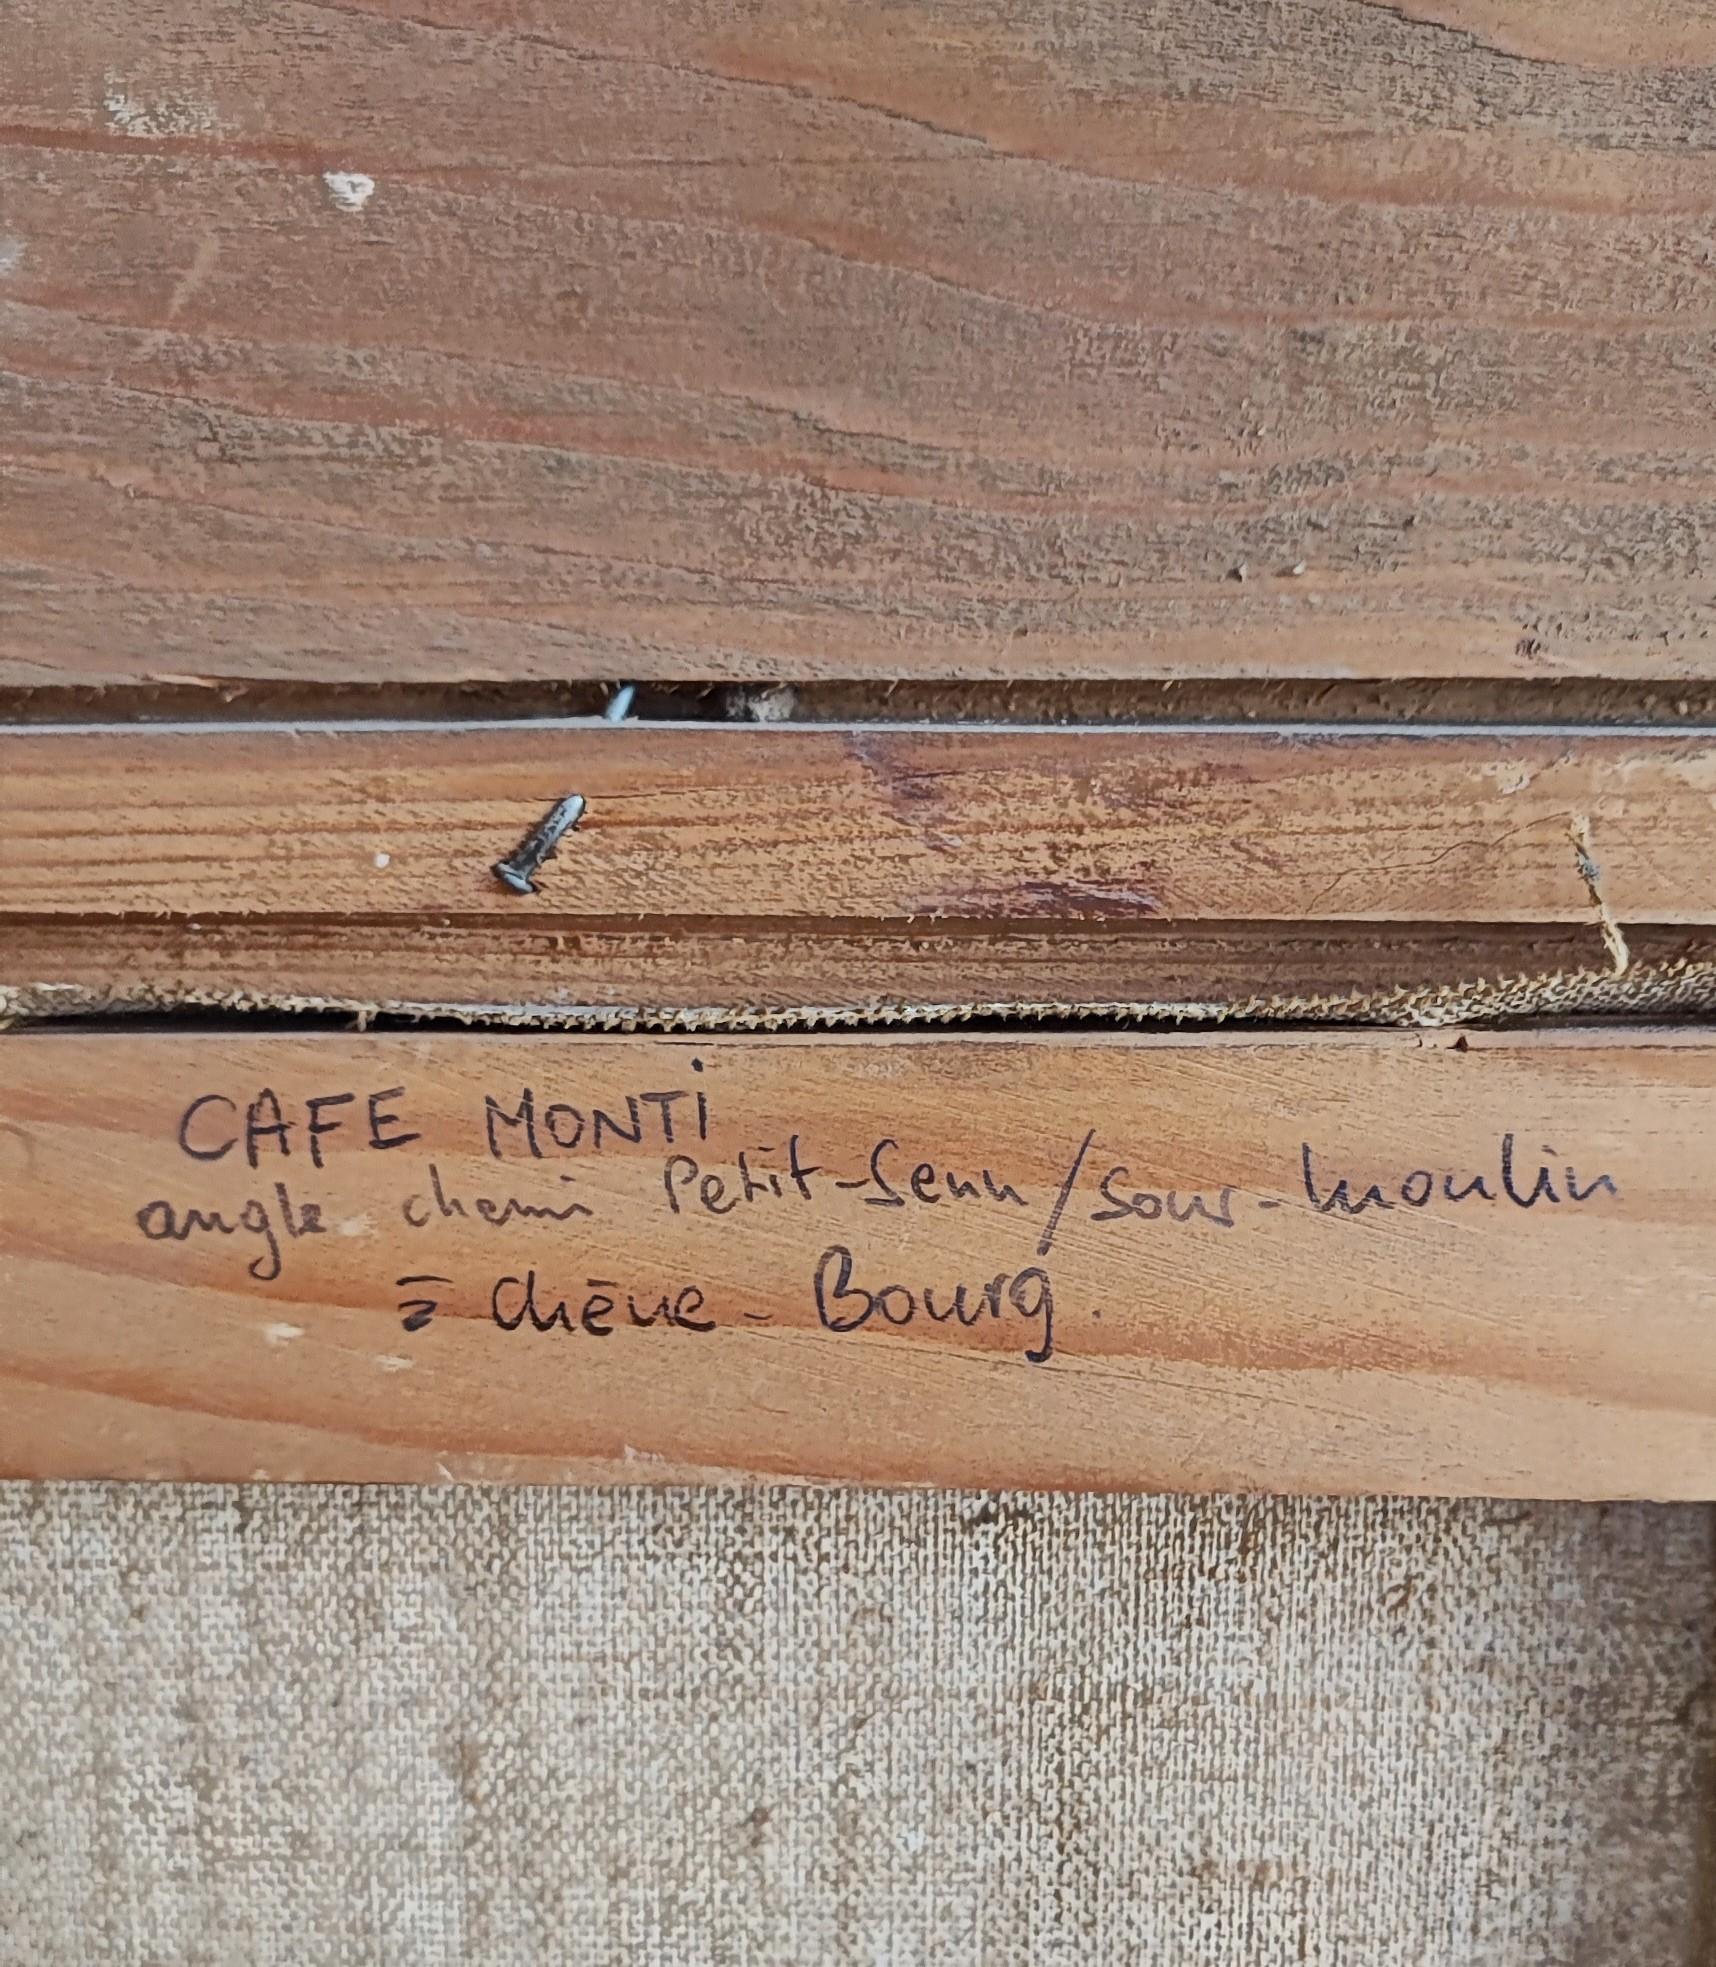 CAFE MONTi
angle chemi Petit-Senn/Sous-Moulin
= Chêne-Bourg.